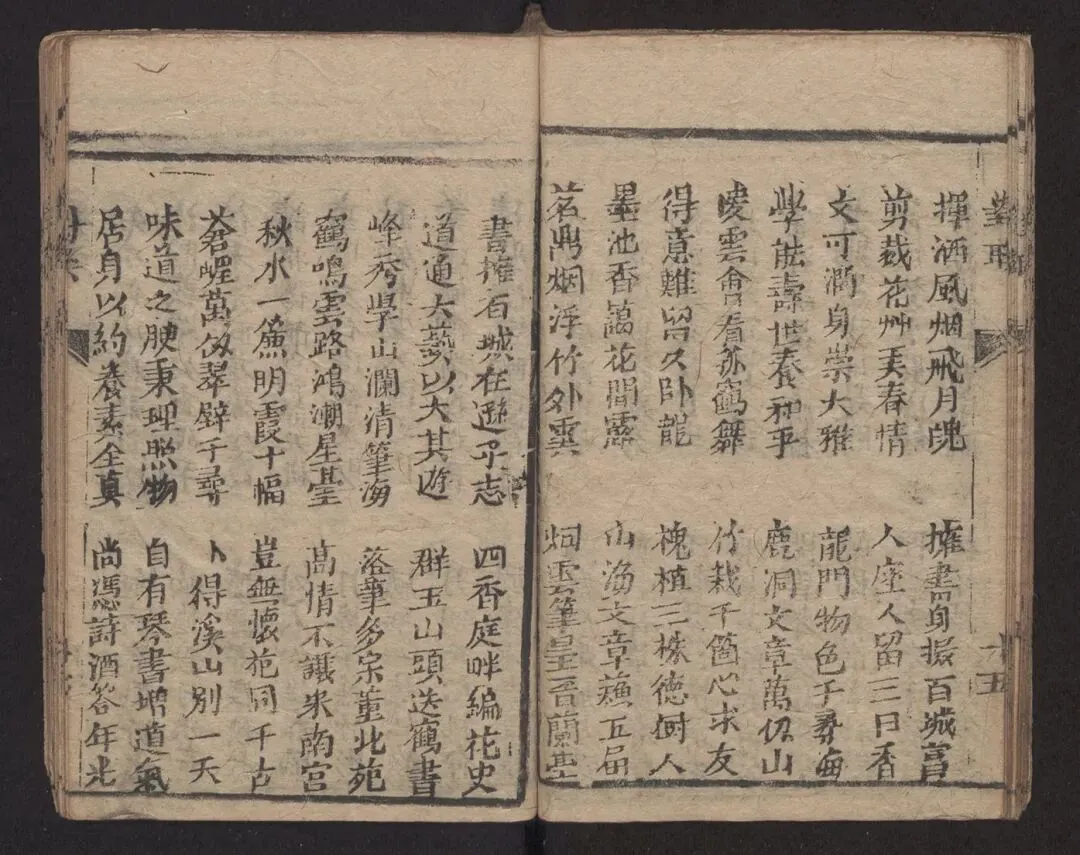 對聯 十五
揮洒風烟飛月魄 擁書身掇百城富
剪裁花艸美春情 人座人留三日香
文可潤身崇大雅 龍門物色千尋海
學能壽世養和平 鹿洞文章萬仞山
崚雲會看孤鶴舞 竹栽千箇心求友
得意難留久卧龍 槐植三株德樹人
墨池香藹花間露 山海文章蘓五局
茗鼎烟浮竹外雲 烟雲筆墨晉蘭臺
書擁百城在遜乎志 四香庭畔編花史
道通大藝以大其遊 群玉山頭迭鶴書
峰秀學山瀾清筆海 落筆多宗董北苑
鶴鳴雲路鴻漸星臺 高情不讓米南宮
秋水一簾明霞十幅 豈無懷抱同千古
蒼崕萬仭翠壁千尋 卜得溪山別一天
味道之腴秉理照物 自有琴書增道氣
居身以約養素全真 尚馮詩酒答年光